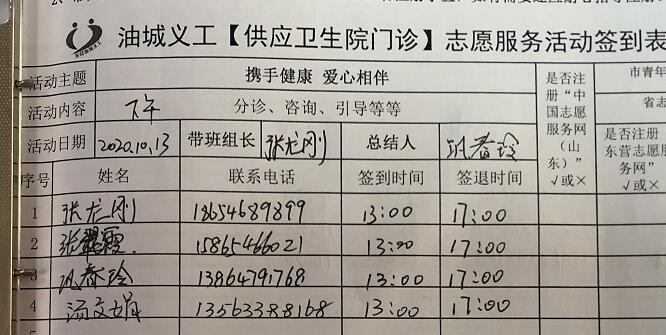 油城义工【供应卫生院门诊】志愿服务活动签到表
活动主题 携手健康 爱心相伴 是否注册“中国志愿服务网（山东）” √或× 市青年
活动内容 下午 分诊、咨询、引导等等 省志
活动日期 2020.10.13 带班组长 张龙刚 总结人 巩春玲 是否注册“东营志愿服务网” √或×
序号 姓名 联系电话 签到时间 签退时间
1 张龙刚 13654689899 13:00 17:00
2 张霞 15865466021 13:00 17:00
3 巩春玲 13864791768 13:00 17:00
4 汤文娟 13563388168 13:00 17:00